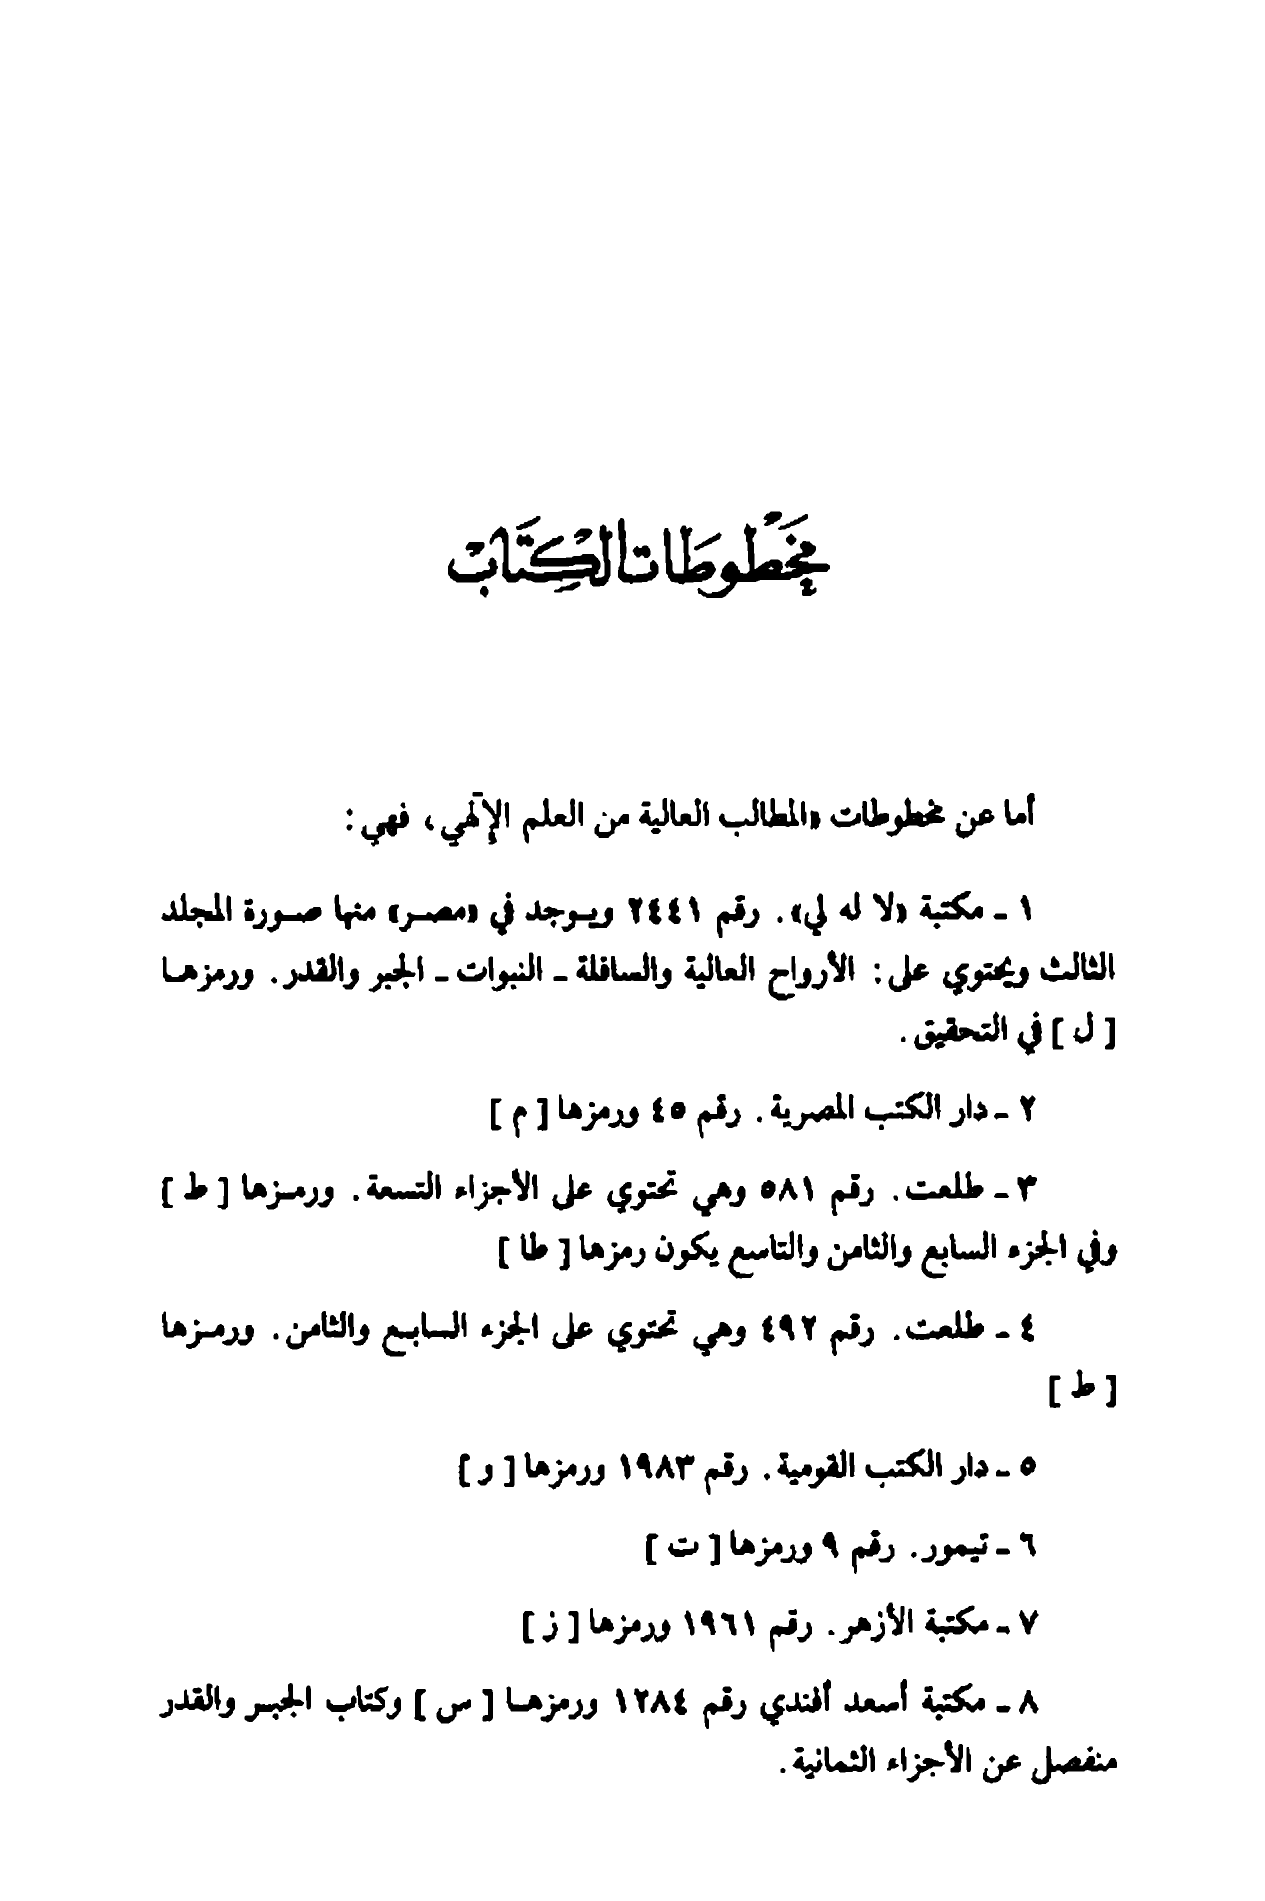 مخطوطات الكتاب
أما عن مخطوطات «المطالب العالية من العلم الإلهي، فهي:
١ ـ مكتبة «لا له لي». رقم ٢٤٤١ ويوجد في «مصر» منها صورة المجلد
الثالث ويحتوي على: الأرواح العالية والسافلة ـ النبوات ـ الجبر والقدر. ورمزها
[ ل ] في التحقيق.
٢ ـ دار الكتب المصرية. رقم ٤٥ ورمزها [ م ]
٣ ـ طلعت. رقم ٥٨١ وهي تحتوي على الأجزاء التسعة. ورمزها [ ط ]
وفي الجزء السابع والثامن والتاسع يكون رمزها [ طا ]
٤ ـ طلعت. رقم ٤٩٢ وهي تحتوي على الجزء السابع والثامن. ورمزها
[ ط ]
٥ ـ دار الكتب القومية. رقم ١٩٨٣ ورمزها [ و ]
٦ ـ تيمور. رقم ٩ ورمزها [ ت ]
٧ ـ مكتبة الأزهر. رقم ١٩٦١ ورمزها [ ز ]
٨ ـ مكتبة أسعد أفندي رقم ١٢٨٤ ورمزها [ س ] وكتاب الجبر والقدر
منفصل عن الأجزاء الثمانية.